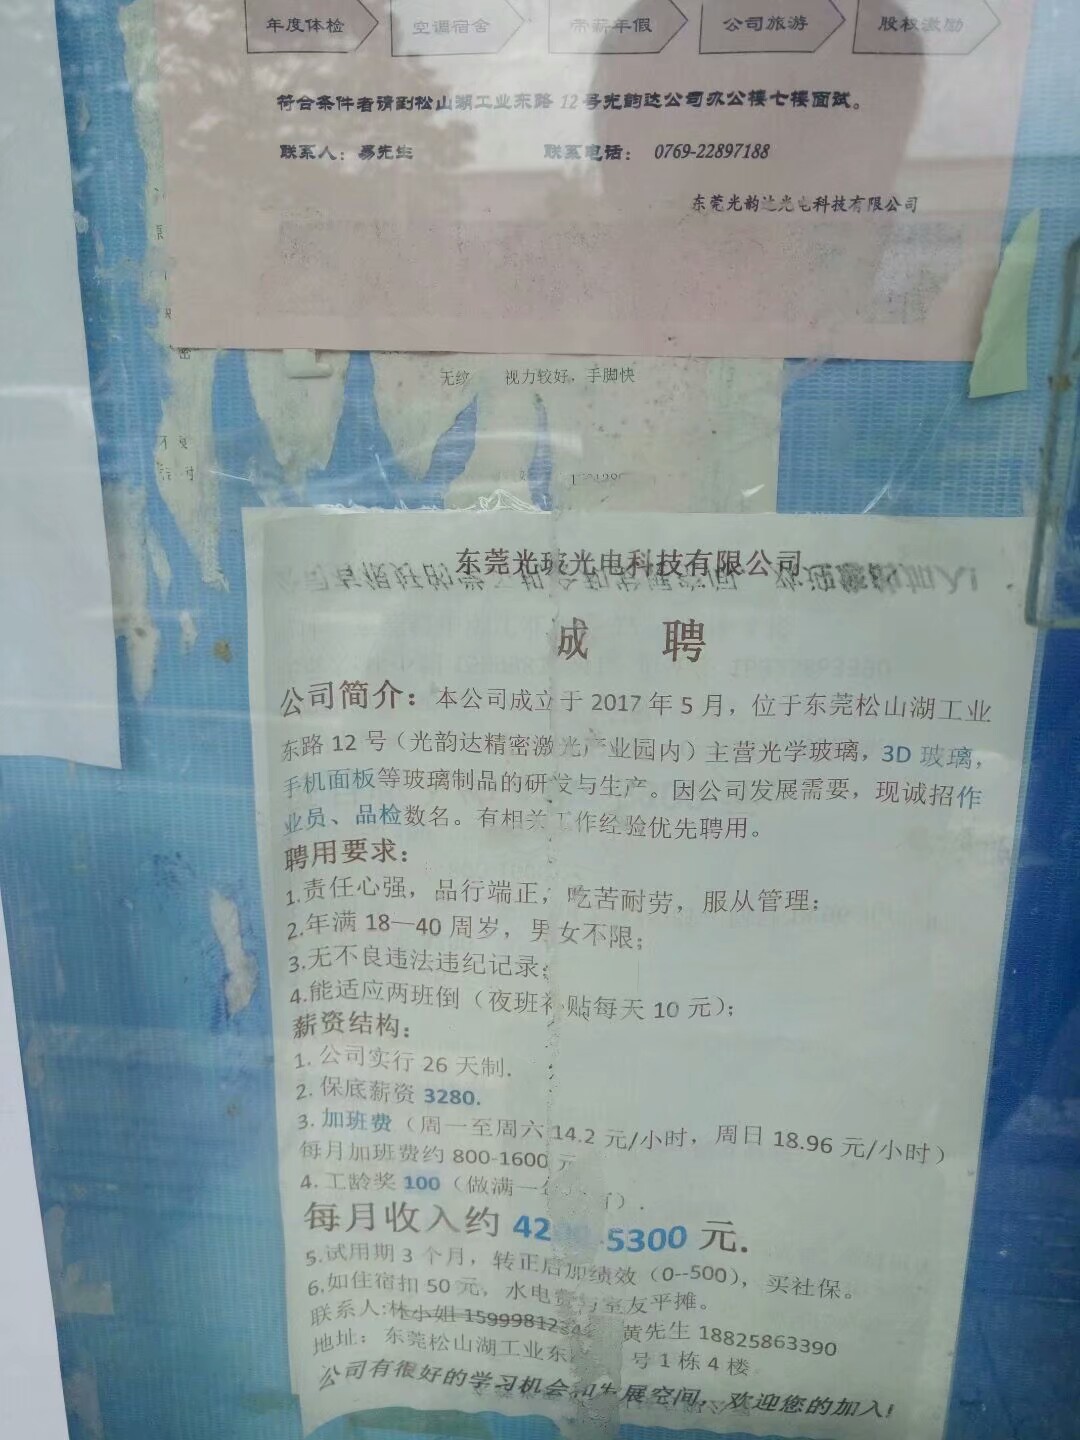 年度体检 空调宿舍 带薪年假 公司旅游 股权激励
符合条件者请到松山湖工业东路12号光韵达公司办公楼七楼面试。
联系人：易先生 联系电话： 0769-22897188
东莞光韵达光电科技有限公司
无纹 视力较好，手脚快
东莞光玻光电科技有限公司
成 聘
公司简介：本公司成立于 2017 年 5 月，位于东莞松山湖工业
东路 12 号（光韵达精密激光产业园内）主营光学玻璃，3D 玻璃，
手机面板等玻璃制品的研发与生产。因公司发展需要，现诚招作
业员、品检数名。有相关工作经验优先聘用。
聘用要求：
1.责任心强，品行端正，吃苦耐劳，服从管理；
2.年满 18—40 周岁，男女不限；
3.无不良违法违纪记录；
4.能适应两班倒（夜班补贴每天 10 元）；
薪资结构：
1. 公司实行 26 天制.
2. 保底薪资 3280.
3. 加班费（周一至周六 14.2 元/小时，周日 18.96 元/小时）
每月加班费约 800-1600 元
4. 工龄奖 100（做满一年
每月收入约 42 5300 元.
5.试用期 3 个月，转正后加绩效（0--500），买社保。
6.如住宿扣 50 元，水电费与室友平摊。
联系人:林小姐 1599981234 黄先生 18825863390
地址：东莞松山湖工业东 号 1 栋 4 楼
公司有很好的学习机会和发展空间，欢迎您的加入!